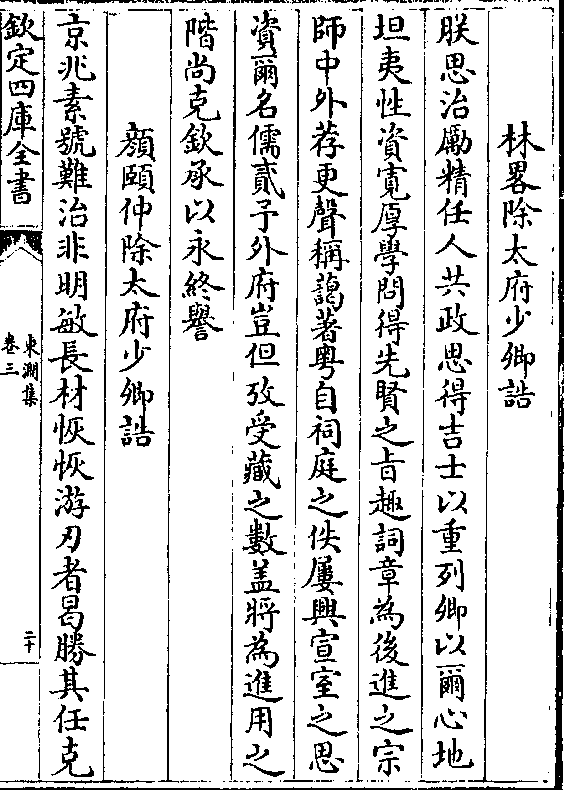 林畧除太府少卿誥
朕思治勵精任人共政思得吉士以重列卿以爾心地
坦夷性資寛厚學問得先賢之㫖趣詞章為後進之宗
師中外荐更聲稱藹著粤自祠庭之佚屢興宣室之思
資爾名儒貳予外府豈但攷受藏之數盖將為進用之
階尚克欽承以永終譽
顔頤仲除太府少卿誥
京兆素號難治非明敏長材恢恢游刃者曷勝其任克
欽定四庫全書
東澗集
卷三
二十